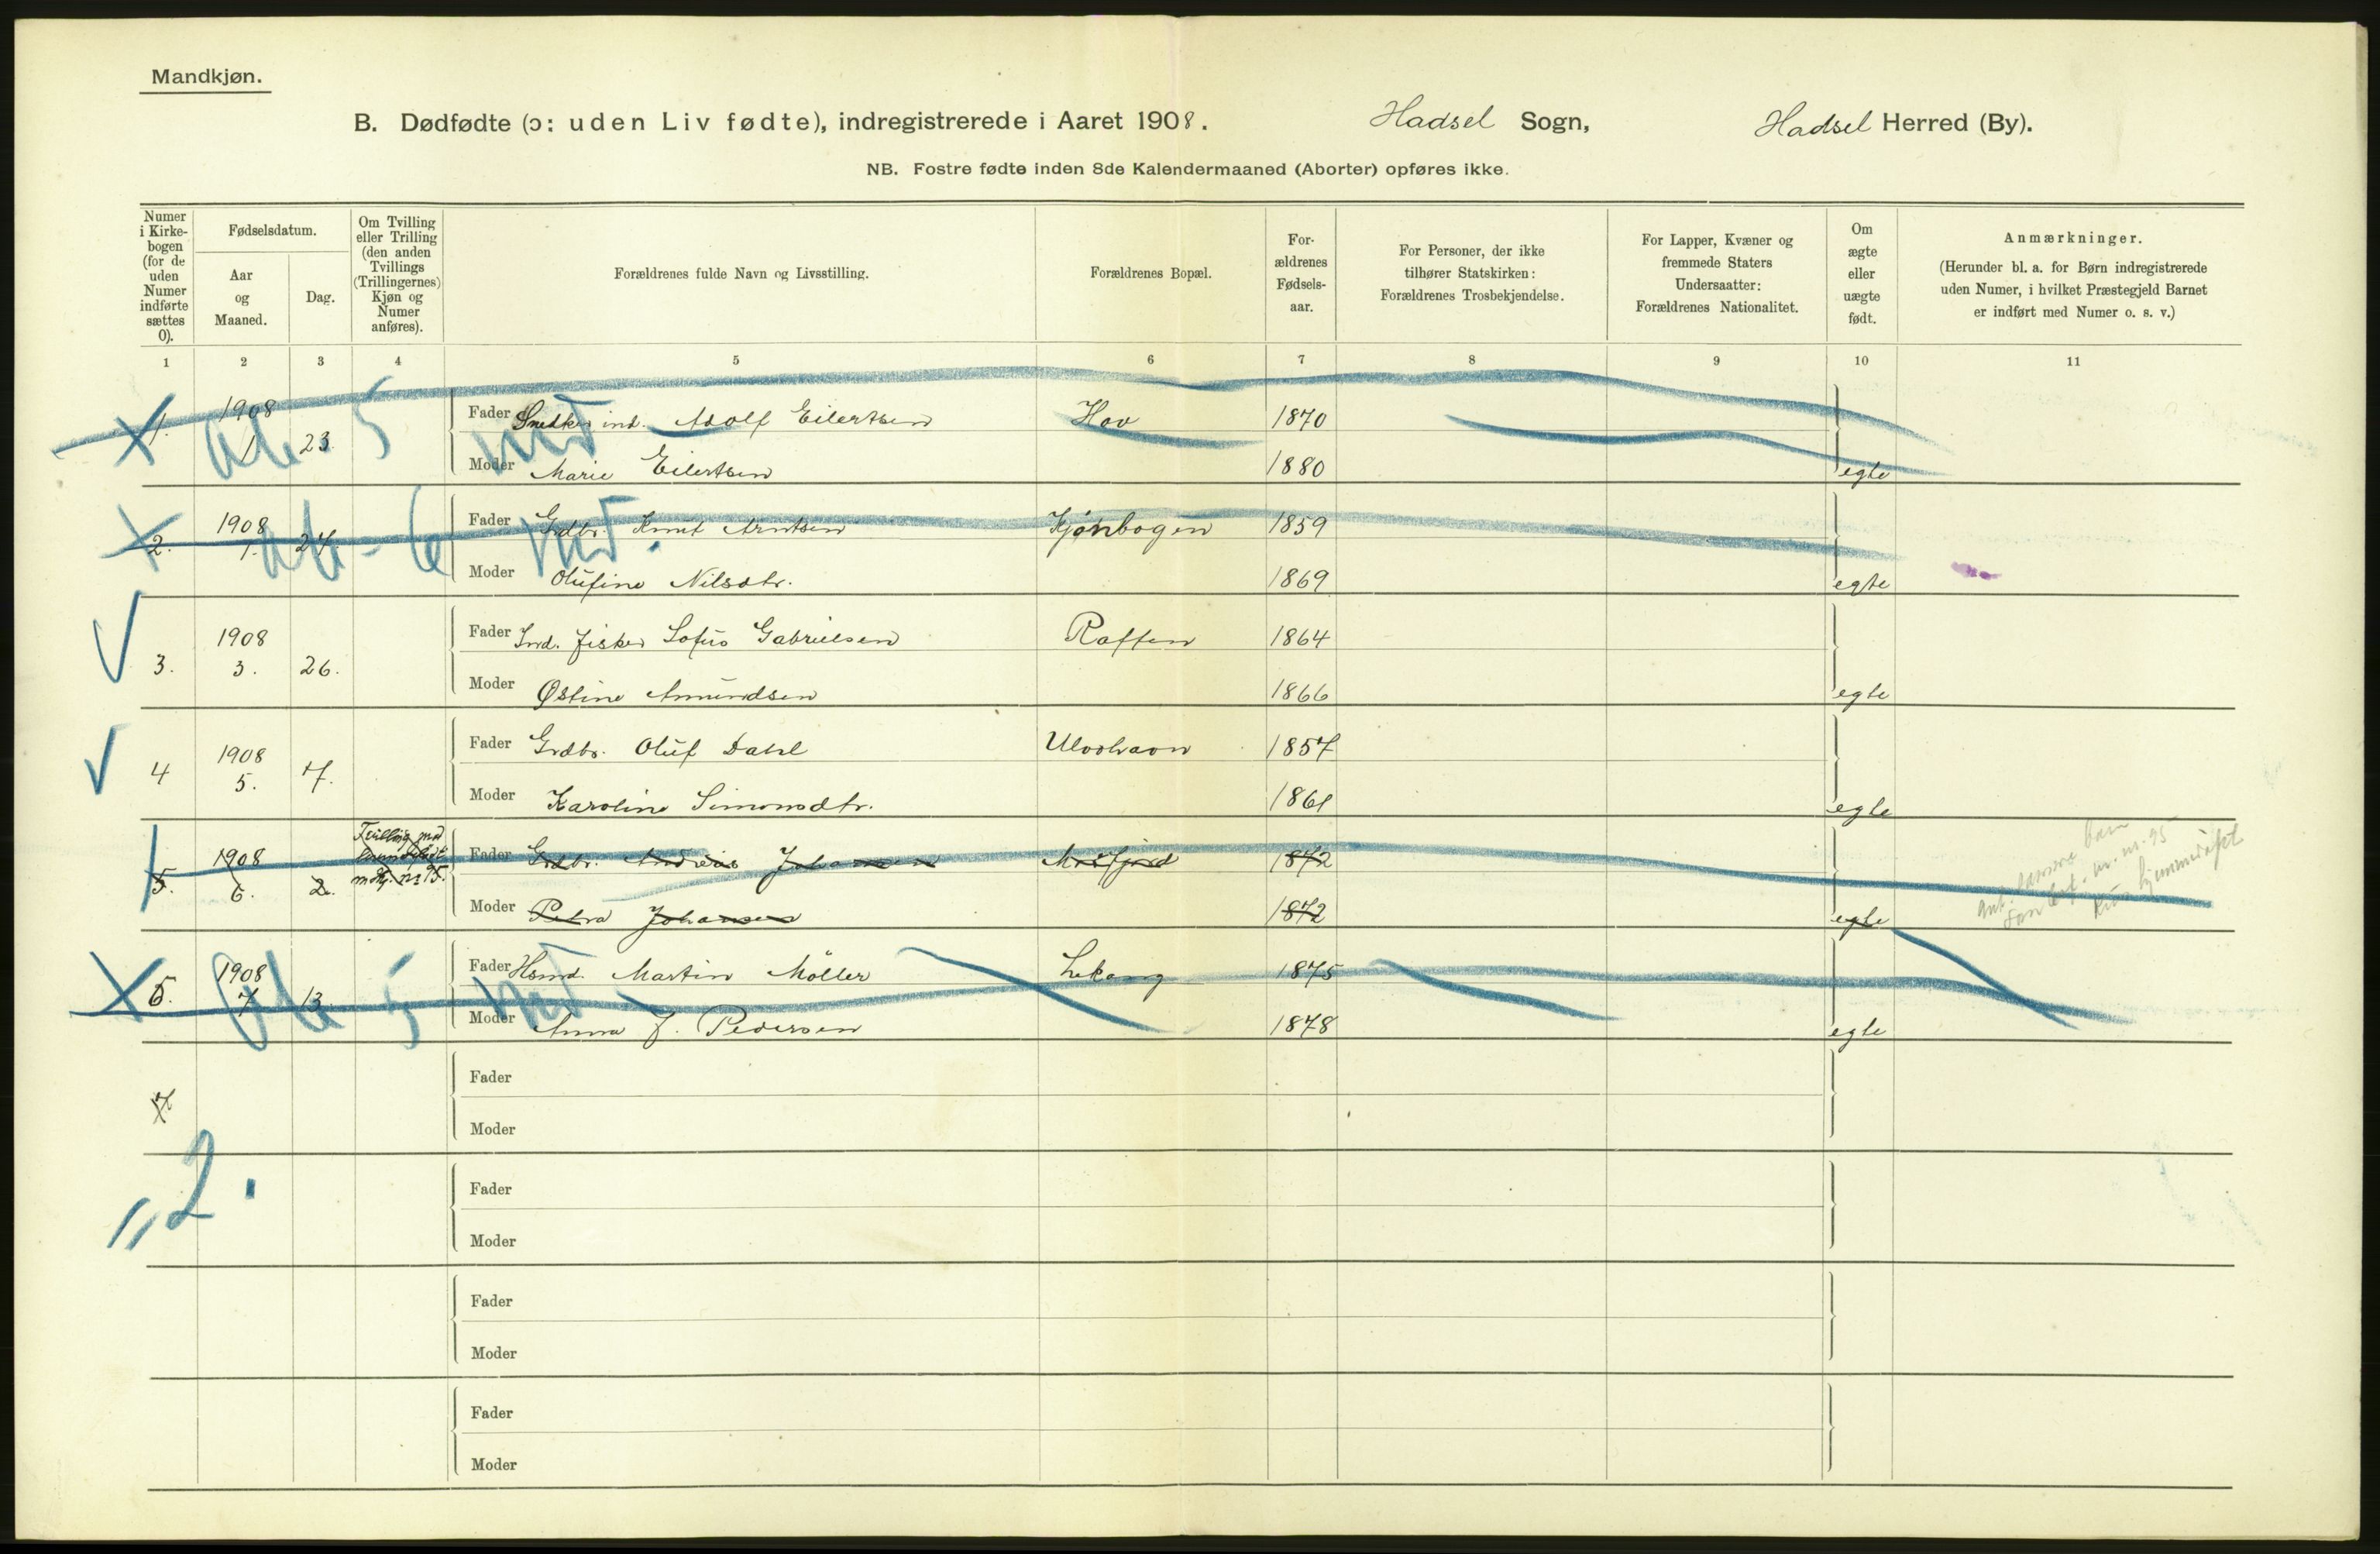 Mandkjøn.
B. Dødfødte (ɔ: uden Liv fødte), indregistrerede i Aaret 1908. Hadsel Sogn, Hadsel Herred (By).
NB. Fostre fødte inden 8de Kalendermaaned (Aborter) opføres ikke.
Numer i Kirke-bogen (for de uden Numer indførte sættes 0).
Fødselsdatum.
Aar og Maaned.
Dag.
Om Tvilling eller Trilling (den anden Tvillings (Trillingernes) Kjøn og Numer anføres).
Forældrenes fulde Navn og Livsstilling.
Forældrenes Bopæl.
For-ældrenes Fødsels-aar.
For Personer, der ikke tilhører Statskirken: Forældrenes Trosbekjendelse.
For Lapper, Kvæner og fremmede Staters Undersaatter: Forældrenes Nationalitet.
Om ægte eller uægte født.
Anmærkninger.
(Herunder bl. a. for Børn indregistrerede uden Numer, i hvilket Præstegjeld Barnet er indført med Numer o. s. v.)
1 2 3 4 5 6 7 8 9 10 11
1. 1908 1. 23. Fader Snedker ind. Adolf Eilertsen Hov 1870
Moder Marie Eilertsen 1880 egte
ab 5 md
2. 1908 1. 27. Fader Grdbr. Knut Arntsen Kjønbogen 1859
Moder Olufine Nilsdtr. 1869 egte
ab - 6 md.
3. 1908 3. 26. Fader Ind. fisker Sofus Gabrielsen Raften 1864
Moder Østine Amundsen 1866 egte
4 1908 5. 7. Fader Grdbr. Oluf Dahl Ulvohavn 1857
Moder Karoline Simonsdtr. 1861 egte
5. 1908 6. 2. Tvilling med
Fader Grdbr. Andreas Johansen 1872
Moder Petra Johansen 1872 egte
6. 1908 7 13 Fader Hsmd. Martin Möller Lekang 1875
Moder Anna J. Pedersen 1878 egte
ab 5 md
7
Fader
Moder
„2.
Fader
Moder
Fader
Moder
Fader
Moder